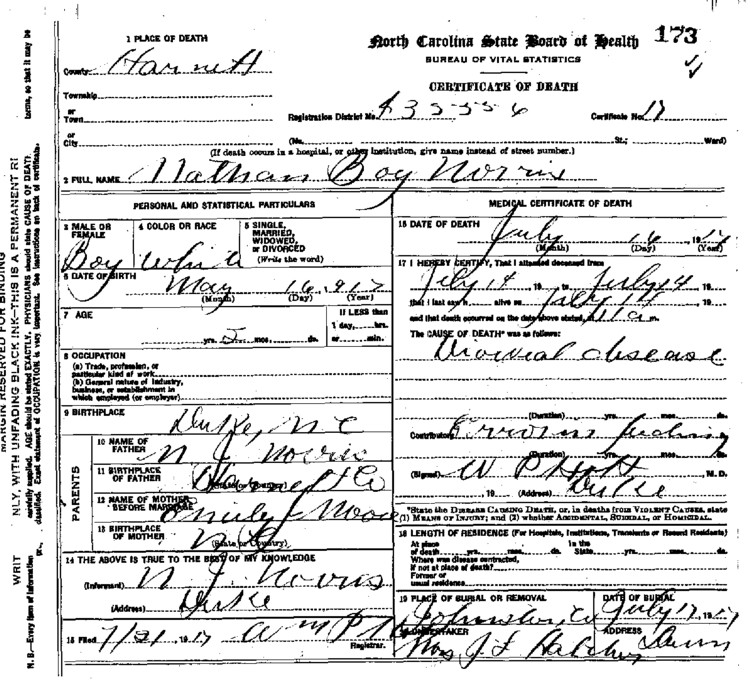 173
North Carolina State Board of Health
BUREAU OF VITAL STATISTICS
CERTIFICATE OF DEATH
1 PLACE OF DEATH
County Harnett
Township
or
Town
Registration District No.
Certificate No. 17
or
City (No. St.; Ward)
(If death occurs in a hospital, or other institution, give name instead of street number.)
2 FULL NAME Nathan Boy Norris
PERSONAL AND STATISTICAL PARTICULARS
3 MALE OR FEMALE
Boy
4 COLOR OR RACE
White
5 SINGLE, MARRIED, WIDOWED, or DIVORCED
(Write the word)
6 DATE OF BIRTH
May 16, 917
(Month) (Day) (Year)
7 AGE
yrs. mos. ds.
If LESS than
1 day, hrs.
or min.
8 OCCUPATION
(a) Trade, profession, or
particular kind of work
(b) General nature of industry,
business, or establishment in
which employed (or employer)
9 BIRTHPLACE
Duke, N C
PARENTS
10 NAME OF FATHER
N J Norris
11 BIRTHPLACE OF FATHER
(State or Country)
12 NAME OF MOTHER BEFORE MARRIAGE
Emily Moore
13 BIRTHPLACE OF MOTHER
N C
(State or Country)
14 THE ABOVE IS TRUE TO THE BEST OF MY KNOWLEDGE
(Informant) N J Norris
(Address) Duke
15 Filed 7/21, 1917
Registrar.
MEDICAL CERTIFICATE OF DEATH
16 DATE OF DEATH
July 16, 1917
(Month) (Day) (Year)
17 I HEREBY CERTIFY, That I attended deceased from
July 14, 19 to July 14, 19
that I last saw h alive on July 14, 19
and that death occurred on the date above stated, 11 a m.
The CAUSE OF DEATH* was as follows:
disease
(Duration) yrs. mos. ds.
Contributory Errors feeding
(Duration) yrs. mos. ds.
(Signed) W P Holt M. D.
, 19 (Address) Duke
*State the DISEASE CAUSING DEATH, or, in deaths from VIOLENT CAUSES, state
(1) MEANS OF INJURY; and (2) whether ACCIDENTAL, SUICIDAL, or HOMICIDAL.
18 LENGTH OF RESIDENCE (For Hospitals, Institutions, Transients or Recent Residents)
At place
of death yrs. mos. ds.
In the
State yrs. mos. ds.
Where was disease contracted,
if not at place of death?
Former or
usual residence
19 PLACE OF BURIAL OR REMOVAL
Johnston, Co
DATE OF BURIAL
July 17, 1917
20 UNDERTAKER
ADDRESS
Dunn
MARGIN RESERVED FOR BINDING
NLY, WITH UNFADING BLACK INK—THIS IS A PERMANENT RE
WRIT
N. B.—Every item of information
carefully supplied. AGE should be stated EXACTLY. PHYSICIANS should state CAUSE OF DEATH
terms, so that it may be
classified. Exact statement of OCCUPATION is very important. See instructions on back of certificate.